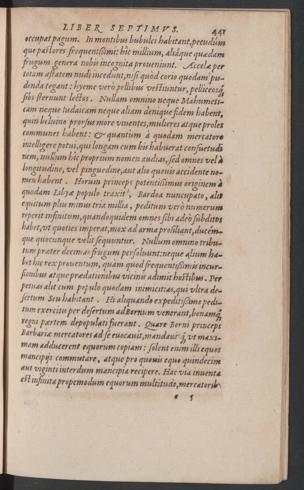 LIBER SEPTIMVS. 441
occupat pagum. In montibus bubulci habitant, pecudum
que pastores frequentissimi: hic millium, aliàque quædam
frugum genera nobis incognita proueniunt. Accolæ per
totam æstatem nudi incedunt, nisi quòd corio quodam pu-
denda tegant: hyeme verò pellibus vestiuntur, pelliceosq́
sibi sternunt lectos. Nullam omnino neque Mahumeti-
cam neque Iudaicam neque aliam denique fidem habent,
quin belluino prorsus more viuentes, mulieres atque proles
communes habent: & quantùm à quodam mercatore
intelligere potui, qui longam cum his habuerat consuetudi
nem, nullum hic proprium nomen audias, sed omnes vel à
longitudine, vel pinguedine, aut alio quouis accidente no-
men habent. Horum princeps potentissimus originem à
quodam Libyæ populo traxit, Bardoa nuncupato, alit
equitum plus minus tria millia, peditum verò numerum
reperit infinitum, quandoquidem omnes sibi adeò subditos
habet, vt quoties imperat, mox ad arma prosiliant, ducém-
que quocunque velit sequuntur. Nullum omnino tribu-
tum præter decimas frugum persoluunt: neque alium ha-
bet hic rex prouentum, quàm quod frequentissimis incur-
sionibus atque prædationibus vicinis adimit hostibus. Per
petuas alit cum populo quodam inimicitias, qui vltra de-
sertum Seu habitant. Hi aliquando expeditissimo pedi-
tum exercitu per desertum ad Bornum venerant, bonamq́
regni partem depopulati fuerant. Quare Borni princeps
Barbariæ mercatores ad se euocauit, mandauitq́, vt maxi-
mam adducerent equorum copiam: solent enim illi eques
mancipijs commutare, atque pro quouis equo quindecim
aut viginti interdum mancipia recipere. Hac via inuenta
est infinita propemodum equorum multitudo, mercatorib
e 5